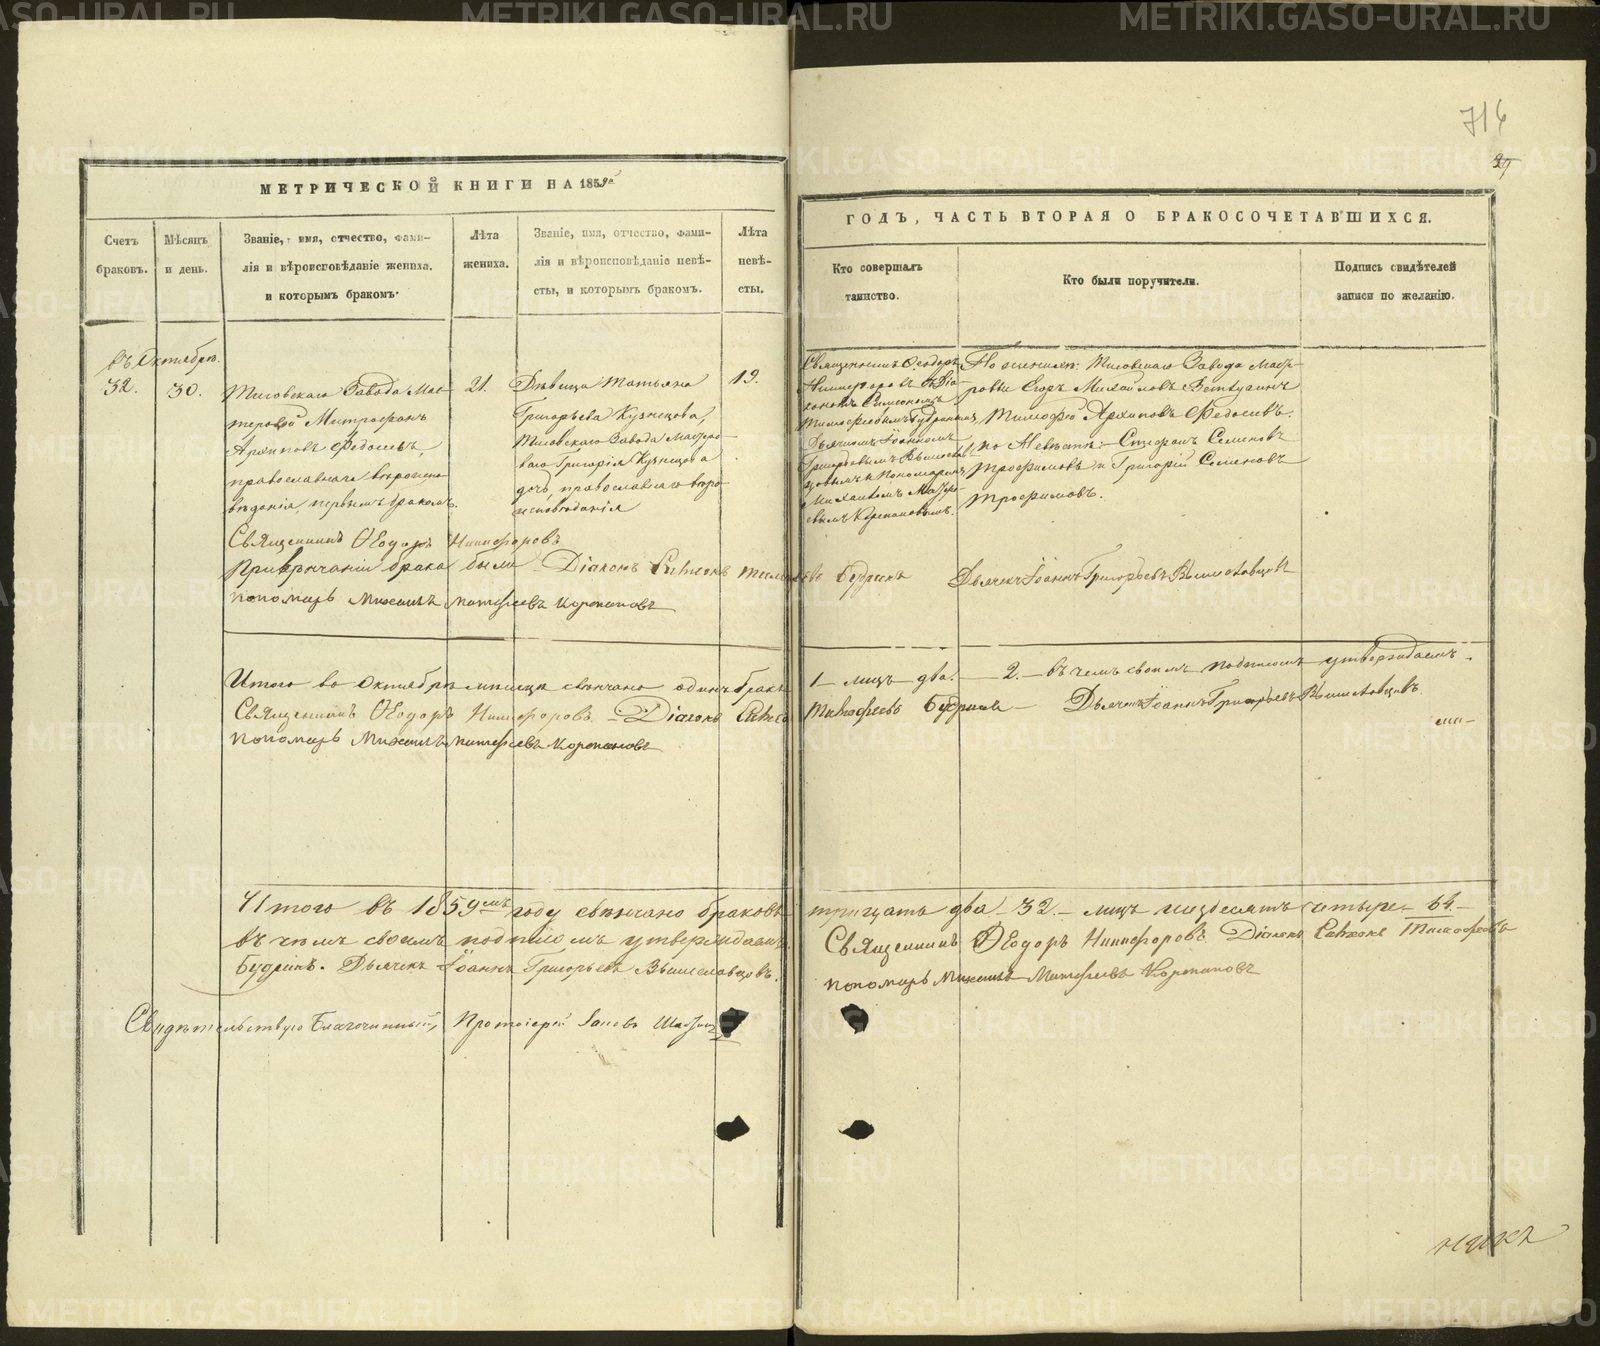 716
39
МЕТРИЧЕСКОЙ КНИГИ НА 1859й
ГОДЪ, ЧАСТЬ ВТОРАЯ О БРАКОСОЧЕТАВШИХСЯ.
Счетъ браковъ.
Мѣсяцъ и день.
Званіе, имя, отчество, фами-
лія и вѣроисповѣданіе жениха.
и которымъ бракомъ.
Лѣта жениха.
Званіе, имя, отчество, фами-
лія и вѣроисповѣданіе невѣ-
сты, и которымъ бракомъ.
Лѣта невѣ-
сты.
Кто совершалъ
таинство.
Кто были поручители.
Подпись свидѣтелей
записи по желанію.
въ Октябрѣ.
32.
30.
Завода Мас-
теровой Митрофанъ
Архиповъ Федосѣевъ,
православнаго вѣроиспо-
вѣданія, первымъ бракомъ.
21.
Дѣвица Татьяна
Григорьева Кузнецова,
Завода Мастеро-
ваго Григорія Кузнецова
дочь, православнаго вѣро-
исповѣданія
19.
Священникъ Ѳеодоръ
Никифоровъ съ Діа-
кономъ Симеономъ
Тимофеевымъ Будринымъ,
Дьячкомъ Іоанномъ
Григорьевымъ Вышеслав-
цовымъ и Пономаремъ
Михаиломъ Матфее-
вымъ Корепановымъ.
По женихѣ: Завода масте-
ровые Егоръ Михайловъ
Тимофей Архиповъ Федосѣевъ.
по Невѣстѣ: Стефанъ Семеновъ
Трофимовъ и Григорій Семеновъ
Трофимовъ.
Священникъ Ѳеодоръ Никифоровъ
При вѣнчаніи брака были Діаконъ Симеонъ Тимофеевъ Будринъ Дьячекъ Іоаннъ Григорьевъ Вышеславцовъ
пономарь Михаилъ Матфеевъ Корепановъ
Итого во Октябрѣ мѣсяцѣ свѣнчано одинъ бракъ 1 – лицъ два. – 2. – въ чемъ своимъ подписомъ утверждаемъ.
Священникъ Ѳеодоръ Никифоровъ – Діаконъ Симеонъ Тимофеевъ Будринъ – Дьячекъ Іоаннъ Григорьевъ Вышеславцовъ.
пономарь Михаилъ Матфеевъ Корепановъ
Итого въ 1859мъ году свѣнчано браковъ тридцать два – 32. – лицъ шездесятъ четыре – 64. –
въ чемъ своимъ подписомъ утверждаемъ. Священникъ Ѳеодоръ Никифоровъ. Діаконъ Симеонъ Тимофеевъ
Будринъ. Дьячекъ Іоаннъ Григорьевъ Вышеславцовъ. пономарь Михаилъ Матфеевъ Корепановъ
Свидѣтельствую Благочинный, Протоіерей
METRIKI.GASO-URAL.RU